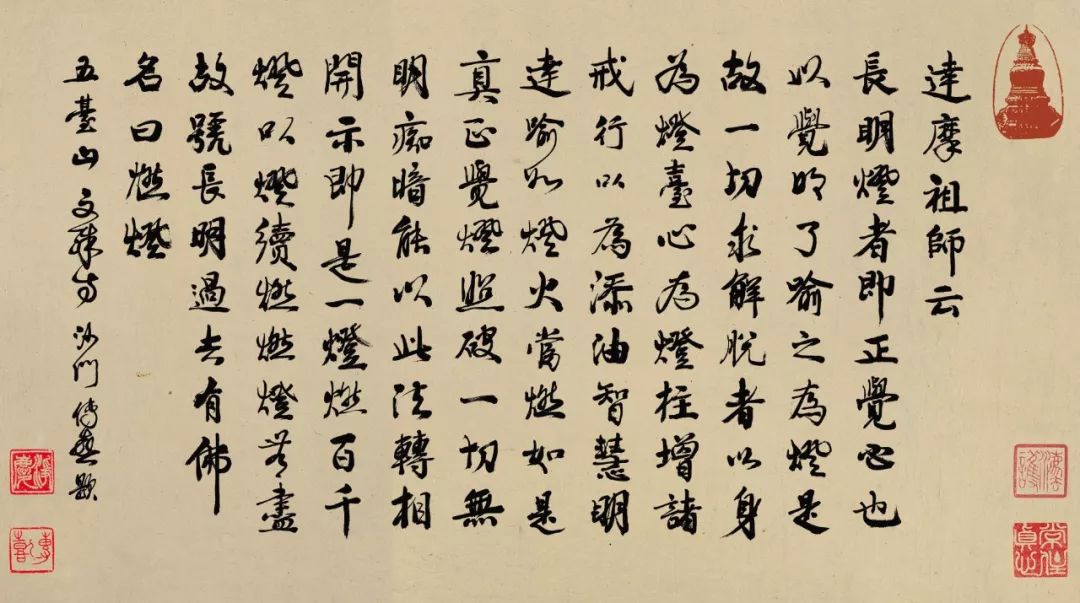 達摩祖師云
長明燈者即正覺心也
以覺明了喻之為燈是
故一切求解脫者以身
為燈臺心為燈柱增諸
戒行以為添油智慧明
達喻如燈火當燃如是
真正覺燈照破一切無
明痴暗能以此法轉相
開示即是一燈燃百千
燈以燈續燃燃燈無盡
故號長明過去有佛
名曰燃燈
五臺山文殊寺沙門傳喜題
傳喜